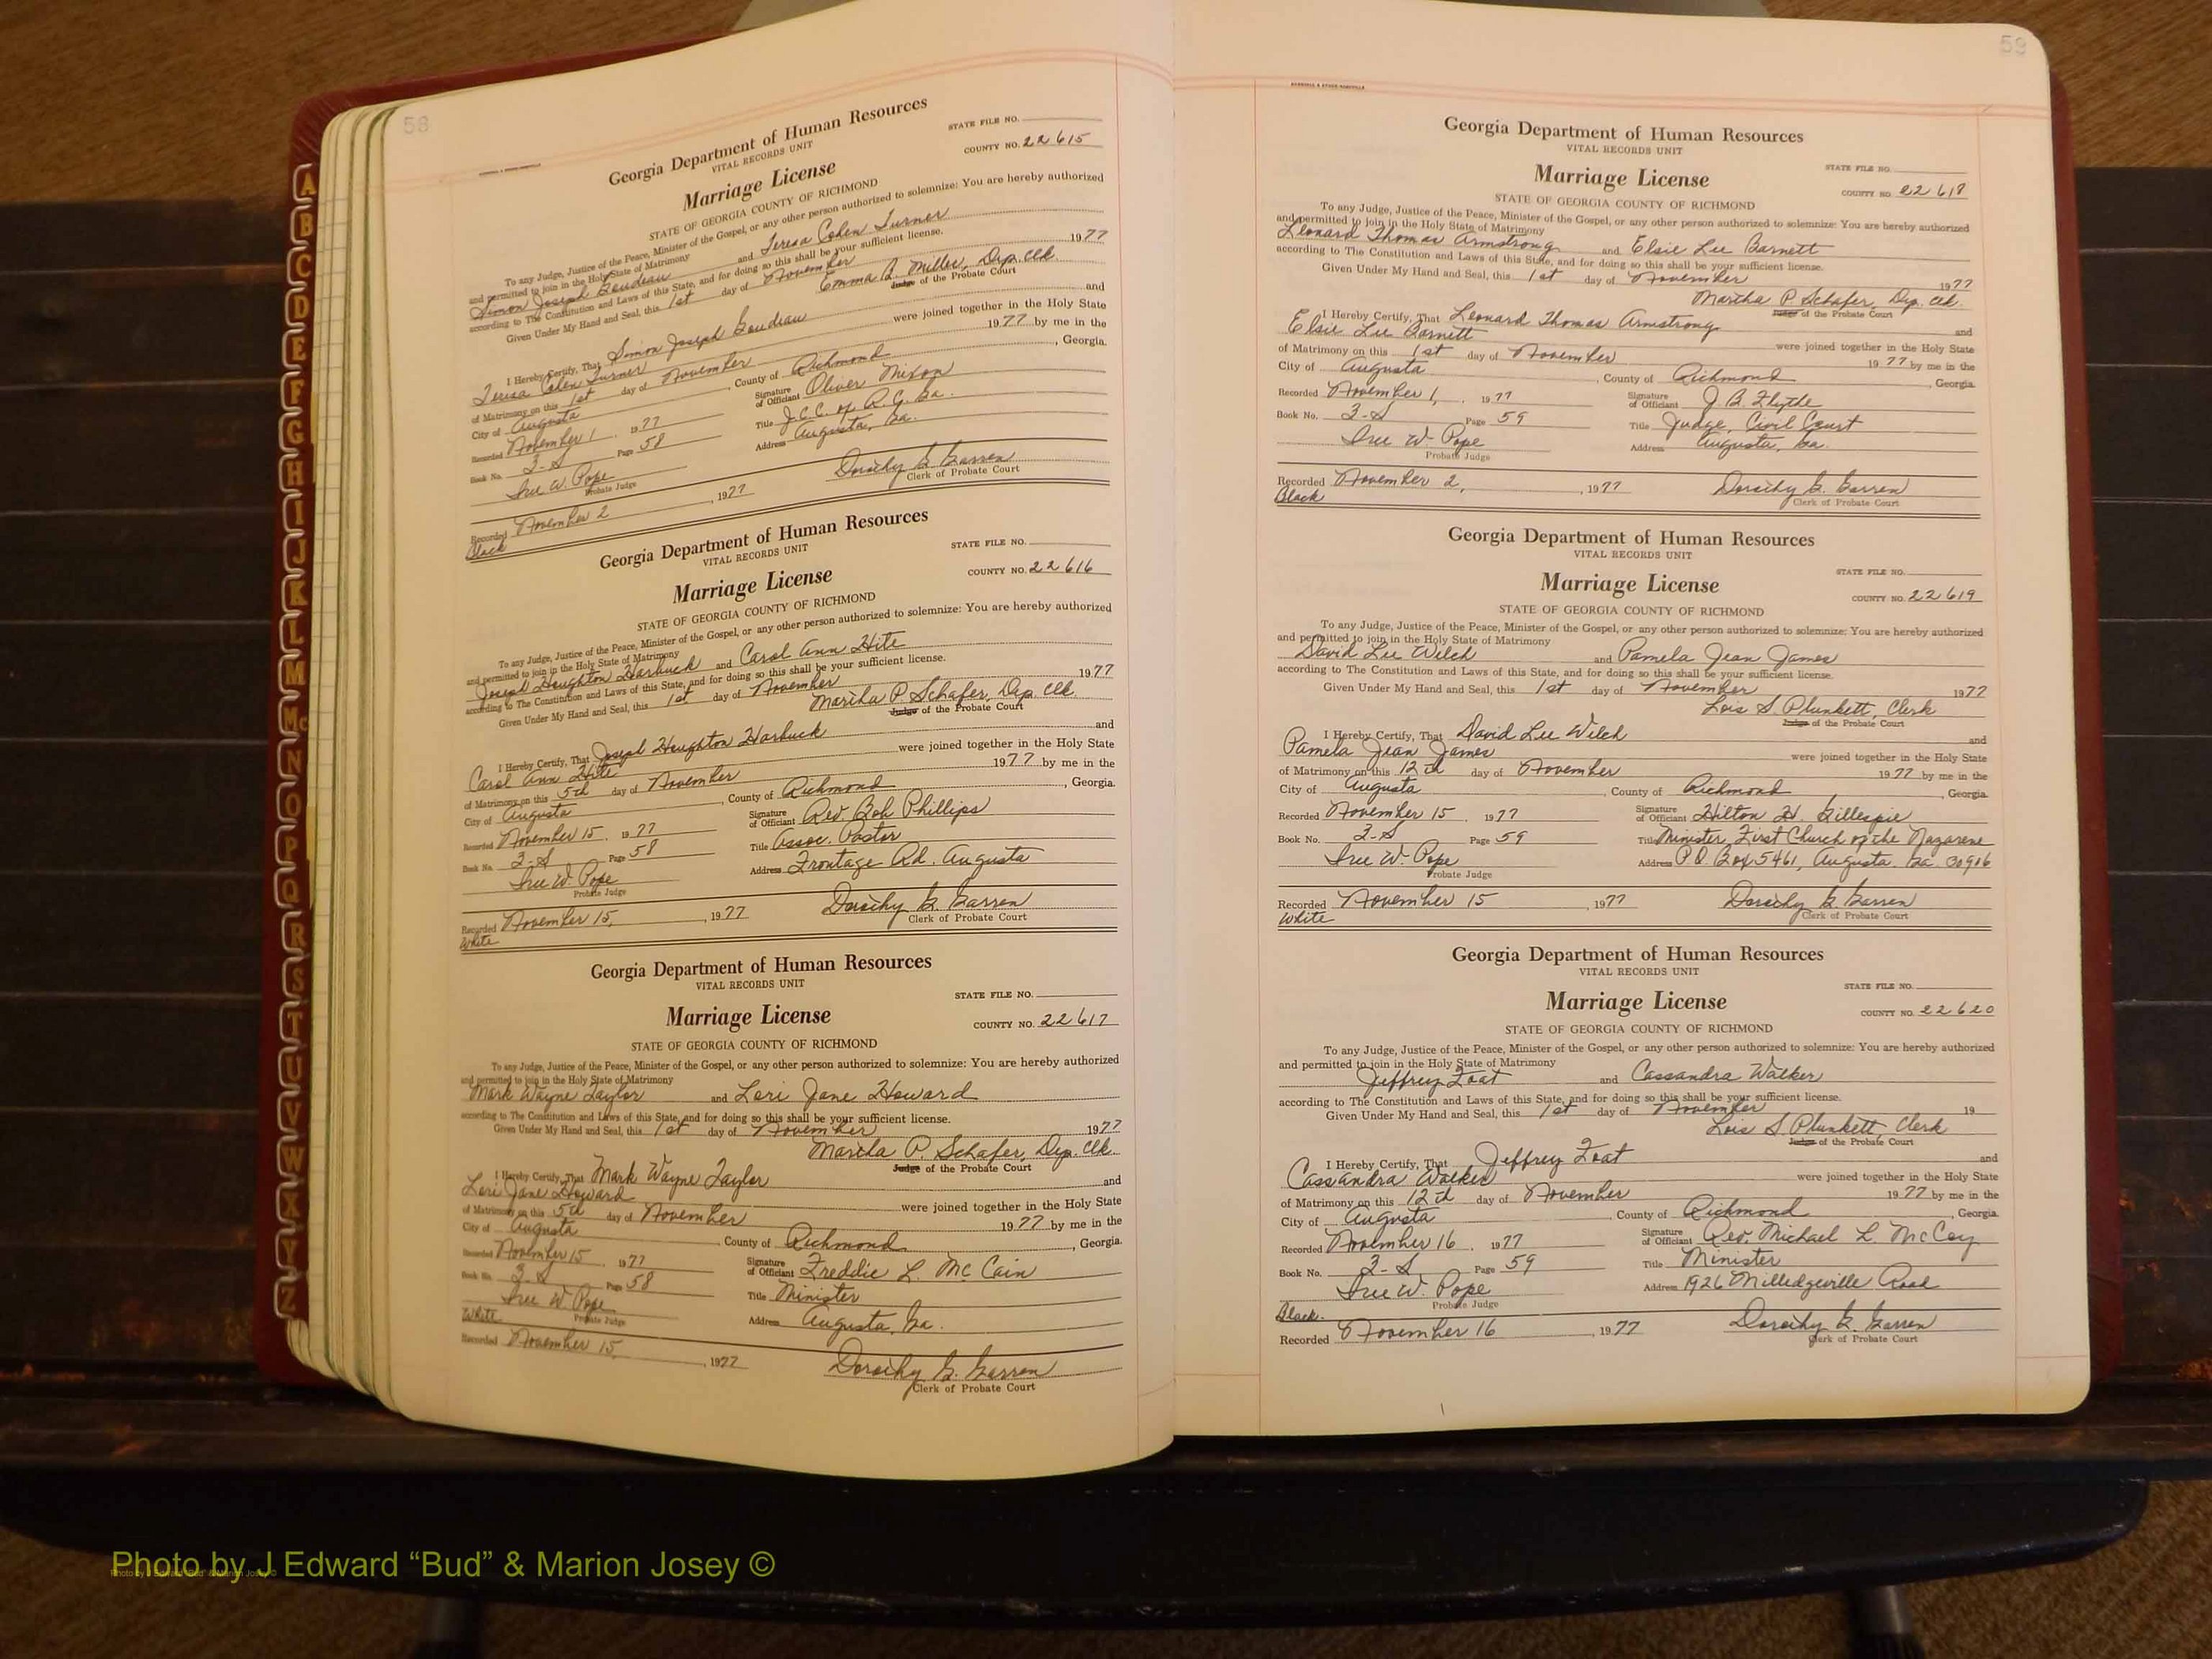 58
Georgia Department of Human Resources
VITAL RECORDS UNIT
STATE FILE NO.
Marriage License
COUNTY NO. 22615
STATE OF GEORGIA COUNTY OF RICHMOND
To any Judge, Justice of the Peace, Minister of the Gospel, or any other person authorized to solemnize: You are hereby authorized
and permitted to join in the Holy State of Matrimony
Simon Joseph Gaudeau and Teresa Cohen Turner
according to The Constitution and Laws of this State, and for doing so this shall be your sufficient license.
Given Under My Hand and Seal, this 1st day of November 1977
Emma R. Miller, Dep. Clk.
Judge of the Probate Court
I Hereby Certify, That Simon Joseph Gaudeau and
Teresa Cohen Turner were joined together in the Holy State
of Matrimony on this 1st day of November 1977 by me in the
City of Augusta, County of Richmond, Georgia.
Recorded November 1, 1977 Signature of Officiant Oliver Mixon
Book No. 3-S Page 58 Title J.C.C. of R.C. Ga.
Iree W. Pope Address Augusta, Ga.
Probate Judge
Recorded November 2, 1977 Dorothy G. Garren
Black Clerk of Probate Court
Georgia Department of Human Resources
VITAL RECORDS UNIT
STATE FILE NO.
Marriage License
COUNTY NO. 22616
STATE OF GEORGIA COUNTY OF RICHMOND
To any Judge, Justice of the Peace, Minister of the Gospel, or any other person authorized to solemnize: You are hereby authorized
and permitted to join in the Holy State of Matrimony
Joseph Houghton Harbuck and Carol Ann Hite
according to The Constitution and Laws of this State, and for doing so this shall be your sufficient license.
Given Under My Hand and Seal, this 1st day of November 1977
Martha P. Schafer, Dep. Clk.
Judge of the Probate Court
I Hereby Certify, That Joseph Houghton Harbuck and
Carol Ann Hite were joined together in the Holy State
of Matrimony on this 5th day of November 1977 by me in the
City of Augusta, County of Richmond, Georgia.
Recorded November 15, 1977 Signature of Officiant Rev. Bob Phillips
Book No. 3-S Page 58 Title Assoc. Pastor
Iree W. Pope Address Frontage Rd. Augusta
Probate Judge
Recorded November 15, 1977 Dorothy G. Garren
White Clerk of Probate Court
Georgia Department of Human Resources
VITAL RECORDS UNIT
STATE FILE NO.
Marriage License
COUNTY NO. 22617
STATE OF GEORGIA COUNTY OF RICHMOND
To any Judge, Justice of the Peace, Minister of the Gospel, or any other person authorized to solemnize: You are hereby authorized
and permitted to join in the Holy State of Matrimony
Mark Wayne Taylor and Lori Jane Howard
according to The Constitution and Laws of this State, and for doing so this shall be your sufficient license.
Given Under My Hand and Seal, this 1st day of November 1977
Martha P. Schafer, Dep. Clk.
Judge of the Probate Court
I Hereby Certify, That Mark Wayne Taylor and
Lori Jane Howard were joined together in the Holy State
of Matrimony on this 5th day of November 1977 by me in the
City of Augusta, County of Richmond, Georgia.
Recorded November 15, 1977 Signature of Officiant Freddie L. McCain
Book No. 3-S Page 58 Title Minister
Iree W. Pope Address Augusta, Ga.
White Probate Judge
Recorded November 15, 1977 Dorothy G. Garren
Clerk of Probate Court
59
Georgia Department of Human Resources
VITAL RECORDS UNIT
STATE FILE NO.
Marriage License
COUNTY NO. 22618
STATE OF GEORGIA COUNTY OF RICHMOND
To any Judge, Justice of the Peace, Minister of the Gospel, or any other person authorized to solemnize: You are hereby authorized
and permitted to join in the Holy State of Matrimony
Leonard Thomas Armstrong and Elsie Lee Barnett
according to The Constitution and Laws of this State, and for doing so this shall be your sufficient license.
Given Under My Hand and Seal, this 1st day of November 1977
Martha P. Schafer, Dep. Clk.
Judge of the Probate Court
I Hereby Certify, That Leonard Thomas Armstrong and
Elsie Lee Barnett were joined together in the Holy State
of Matrimony on this 1st day of November 1977 by me in the
City of Augusta, County of Richmond, Georgia.
Recorded November 1, 1977 Signature of Officiant J. B. Flythe
Book No. 3-S Page 59 Title Judge, Civil Court
Iree W. Pope Address Augusta, Ga.
Probate Judge
Recorded November 2, 1977 Dorothy G. Garren
Black Clerk of Probate Court
Georgia Department of Human Resources
VITAL RECORDS UNIT
STATE FILE NO.
Marriage License
COUNTY NO. 22619
STATE OF GEORGIA COUNTY OF RICHMOND
To any Judge, Justice of the Peace, Minister of the Gospel, or any other person authorized to solemnize: You are hereby authorized
and permitted to join in the Holy State of Matrimony
David Lee Welch and Pamela Jean James
according to The Constitution and Laws of this State, and for doing so this shall be your sufficient license.
Given Under My Hand and Seal, this 1st day of November 1977
Lois S. Plunkett, Clerk
Judge of the Probate Court
I Hereby Certify, That David Lee Welch and
Pamela Jean James were joined together in the Holy State
of Matrimony on this 12th day of November 1977 by me in the
City of Augusta, County of Richmond, Georgia.
Recorded November 15, 1977 Signature of Officiant Hilton H. Gillespie
Book No. 3-S Page 59 Title Minister, First Church of the Nazarene
Iree W. Pope Address P.O. Box 5461, Augusta, Ga. 30906
Probate Judge
Recorded November 15, 1977 Dorothy G. Garren
White Clerk of Probate Court
Georgia Department of Human Resources
VITAL RECORDS UNIT
STATE FILE NO.
Marriage License
COUNTY NO. 22620
STATE OF GEORGIA COUNTY OF RICHMOND
To any Judge, Justice of the Peace, Minister of the Gospel, or any other person authorized to solemnize: You are hereby authorized
and permitted to join in the Holy State of Matrimony
Jeffrey Foat and Cassandra Walker
according to The Constitution and Laws of this State, and for doing so this shall be your sufficient license.
Given Under My Hand and Seal, this 1st day of November 19
Lois S. Plunkett, Clerk
Judge of the Probate Court
I Hereby Certify, That Jeffrey Foat and
Cassandra Walker were joined together in the Holy State
of Matrimony on this 12th day of November 1977 by me in the
City of Augusta, County of Richmond, Georgia.
Recorded November 16, 1977 Signature of Officiant Rev. Michael L. McCoy
Book No. 3-S Page 59 Title Minister
Iree W. Pope Address 1926 Milledgeville Road
Probate Judge
Black.
Recorded November 16, 1977 Dorothy G. Garren
Clerk of Probate Court
A
B
C
D
E
F
G
H
I
J
K
L
M
Mc
N
O
P
Q
R
S
T
U
V
W
X
Y
Z
Photo by J Edward “Bud” & Marion Josey ©
Photo by J Edward “Bud” & Marion Josey ©